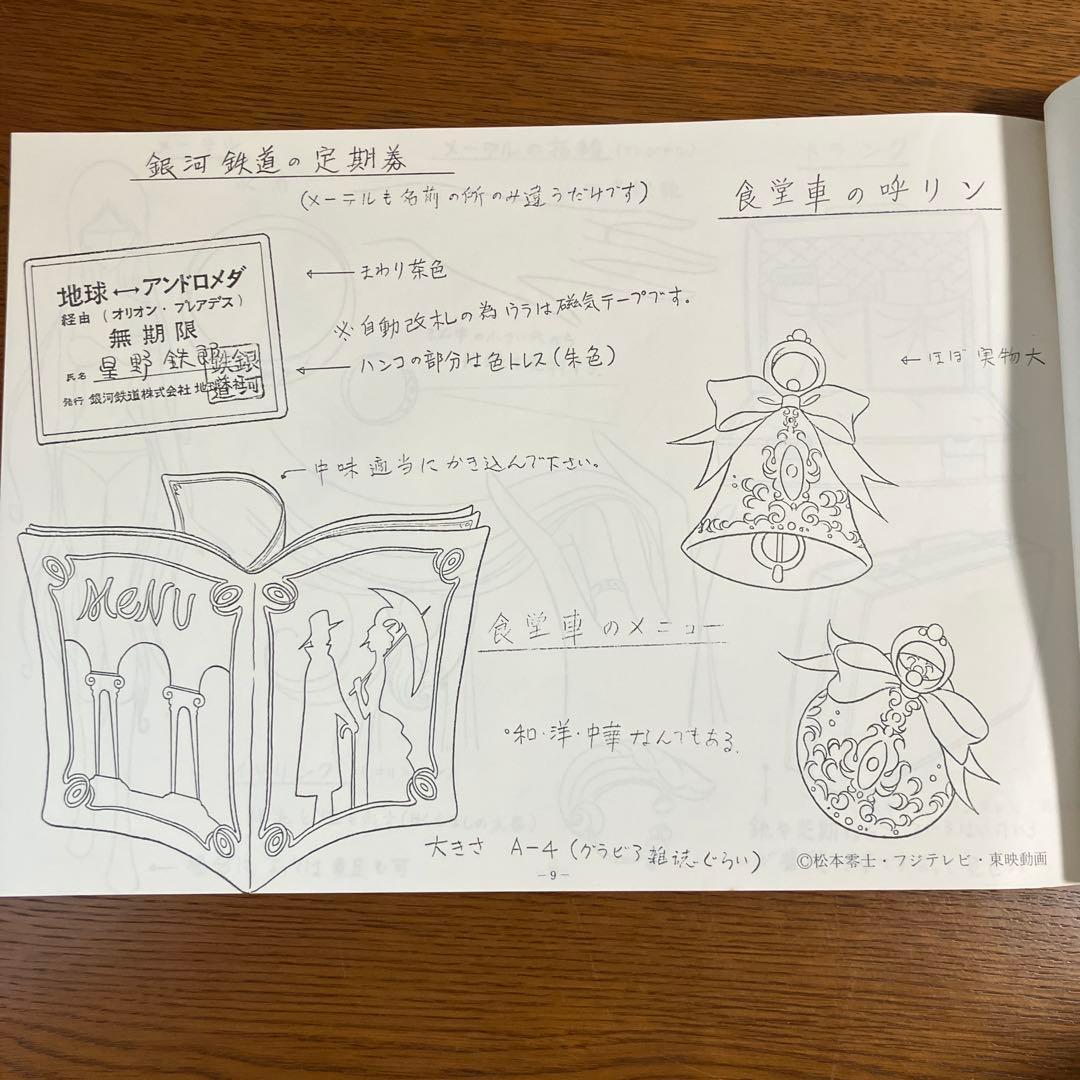 銀河鉄道の定期券
(メーテルも名前の所のみ違うだけです)
地球←→アンドロメダ
経由(オリオン・プレアデス)
無期限
氏名 星野鉄郎
発行 銀河鉄道株式会社 地球本社
銀河鉄道
←まわり茶色
※自動改札の為ウラは磁気テープです。
←ハンコの部分は色トレス(朱色)
食堂車の呼リン
←ほぼ実物大
中味適当にかき込んで下さい。
MeNU
食堂車のメニュー
°和・洋・中華なんでもある。
大きさ A-4(グラビア雑誌ぐらい)
-9-
©松本零士・フジテレビ・東映動画